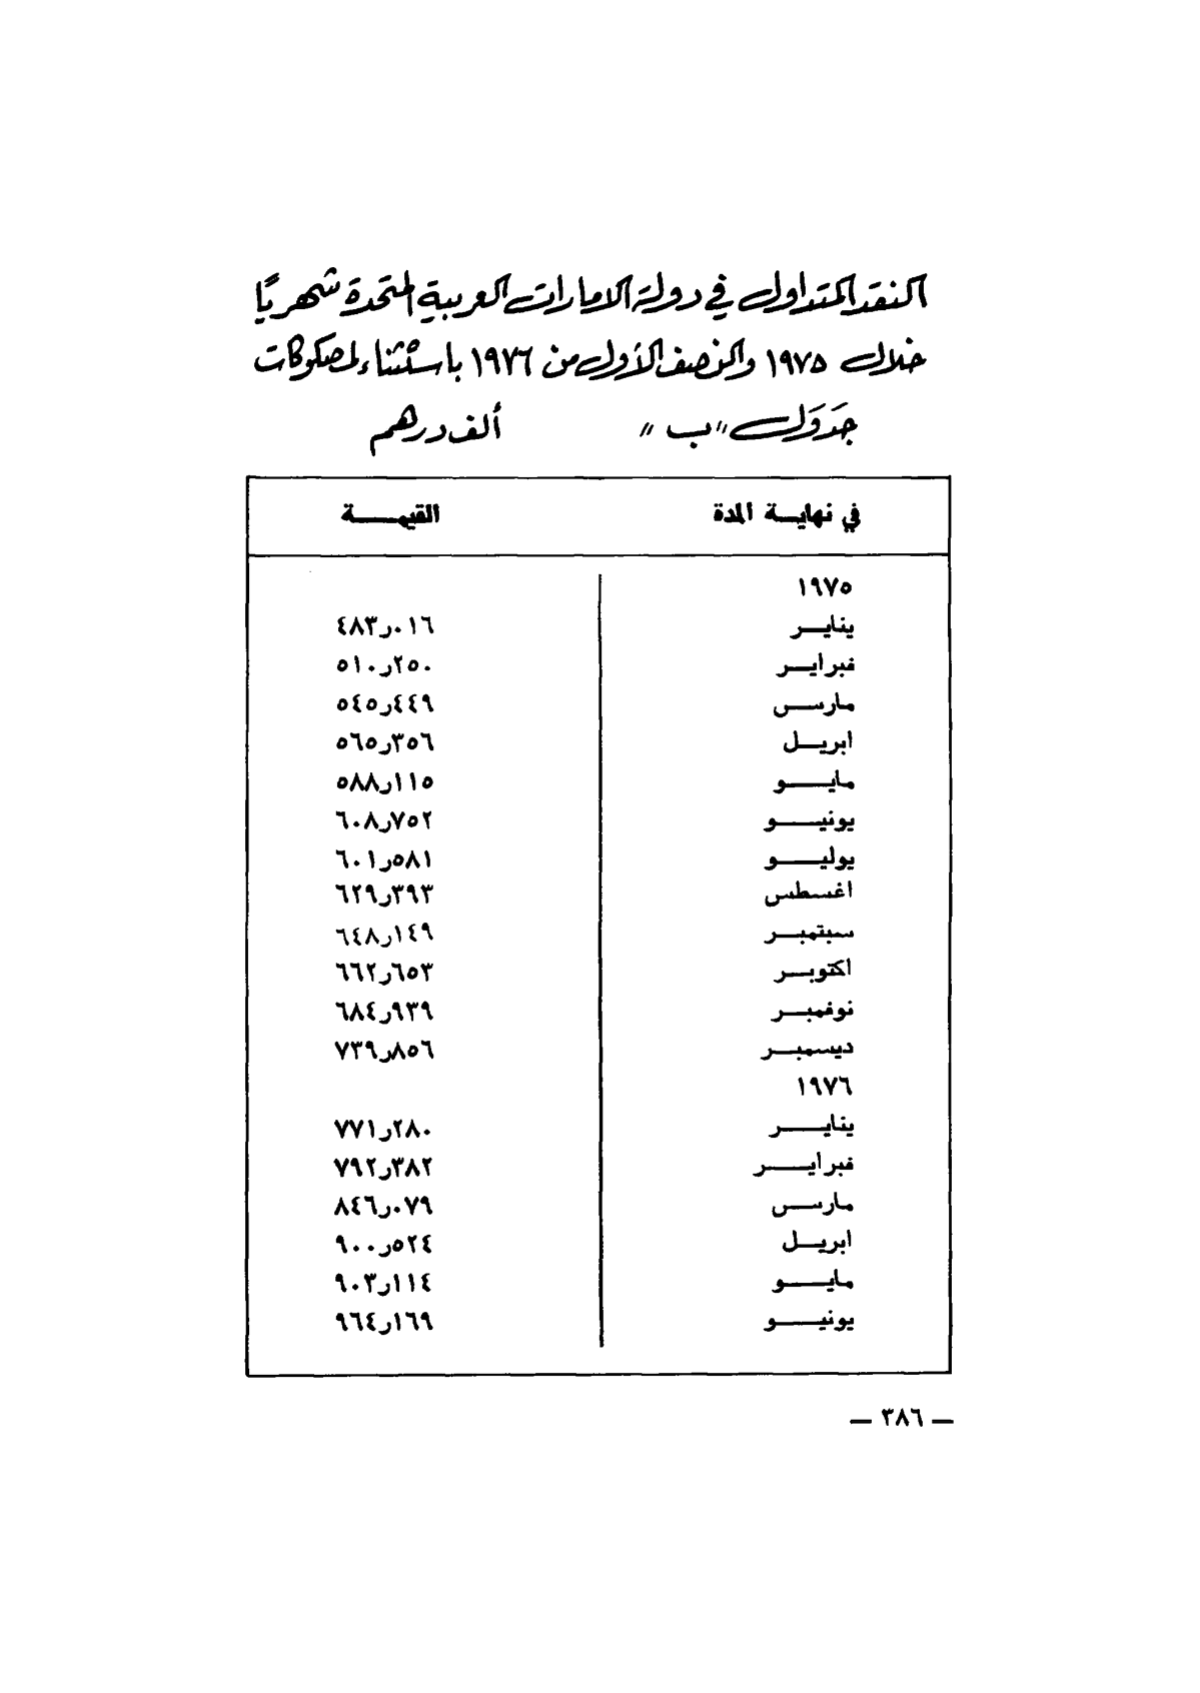 النقد المتداول في دولة الامارات العربية المتحدة شهريًا
خلال ١٩٧٥ والنصف الأول من ١٩٧٦ باستثناء المصكوكات
جَدوَل "ب" ألف درهم
في نهايـــة المدة القيمـــــة
١٩٧٥
ينايـــر ٤٨٣ر٠١٦
فبرايـــر ٥١٠ر٢٥٠
مارســـس ٥٤٥ر٤٤٩
ابريـــل ٥٦٥ر٣٥٦
مايـــــو ٥٨٨ر١١٥
يونيـــــو ٦٠٨ر٧٥٢
يوليـــــو ٦٠١ر٥٨١
اغسطس ٦٢٩ر٣٩٣
سبتمبـــر ٦٤٨ر١٤٩
اكتوبـــر ٦٦٢ر٦٥٣
نوفمبـــر ٦٨٤ر٩٣٩
ديسمبـــر ٧٣٩ر٨٥٦
١٩٧٦
ينايـــــر ٧٧١ر٢٨٠
فبرايـــــر ٧٩٢ر٣٨٢
مارســـس ٨٤٦ر٠٧٩
ابريـــل ٩٠٠ر٥٢٤
مايـــــو ٩٠٣ر١١٤
يونيـــــو ٩٦٤ر١٦٩
— ٣٨٦ —